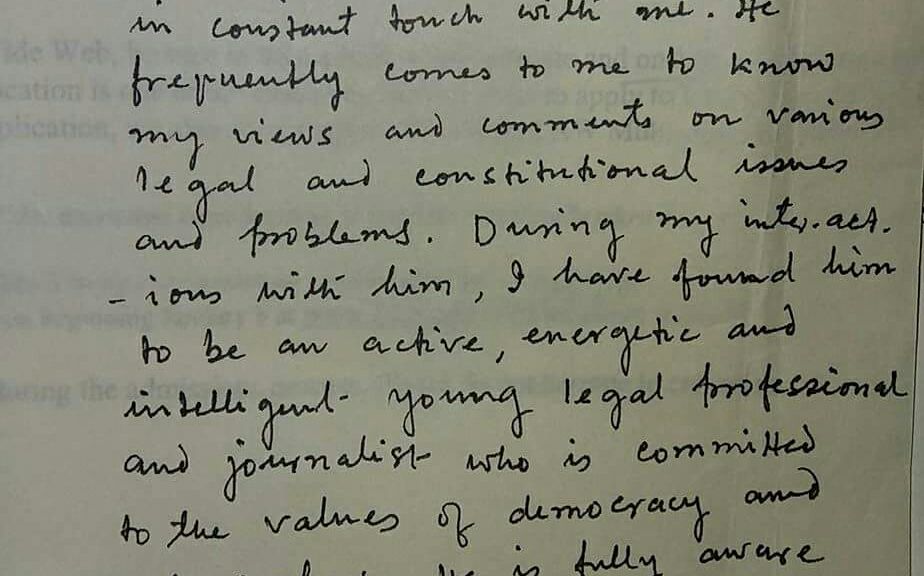 in constant touch with me. He
frequently comes to me to know
my views and comments on various
legal and constitutional issues
and problems. During my inter.act.
- ions with him, I have found him
to be an active, energetic and
intelligent young legal professional
and journalist who is committed
to the values of democracy and
He is fully aware